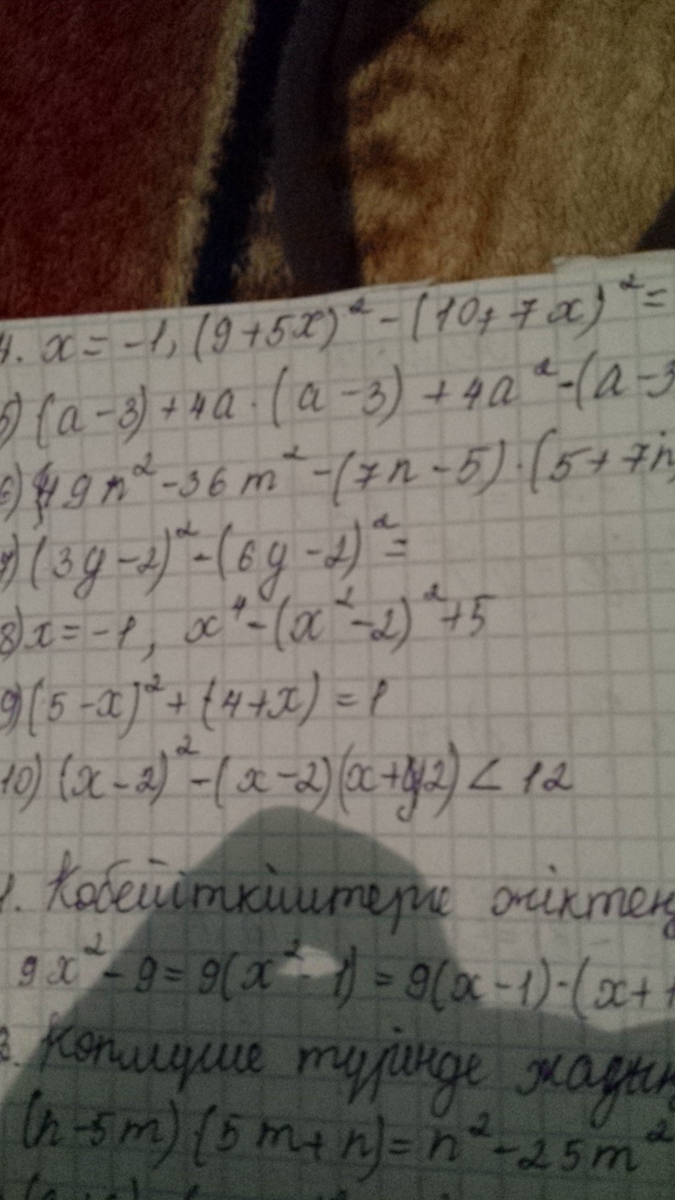 4. x = -1, (9+5x)² - (10+7x)² =
5) (a-3)+4a·(a-3)+4a² - (a-3
6) 49n² - 36m² - (7n-5)·(5+7n)
7) (3y-2)² - (6y-2)² =
8) x = -1, x⁴ - (x²-2)² + 5
9) (5-x)² + (4+x) = 1
10) (x-2)² - (x-2)(x+2) < 12
1. Көбейткіштерге жіктең
9x² - 9 = 9(x² - 1) = 9(x-1)·(x+1
Көпмүше түрінде жазың
(n-5m)(5m+n) = n² - 25m²